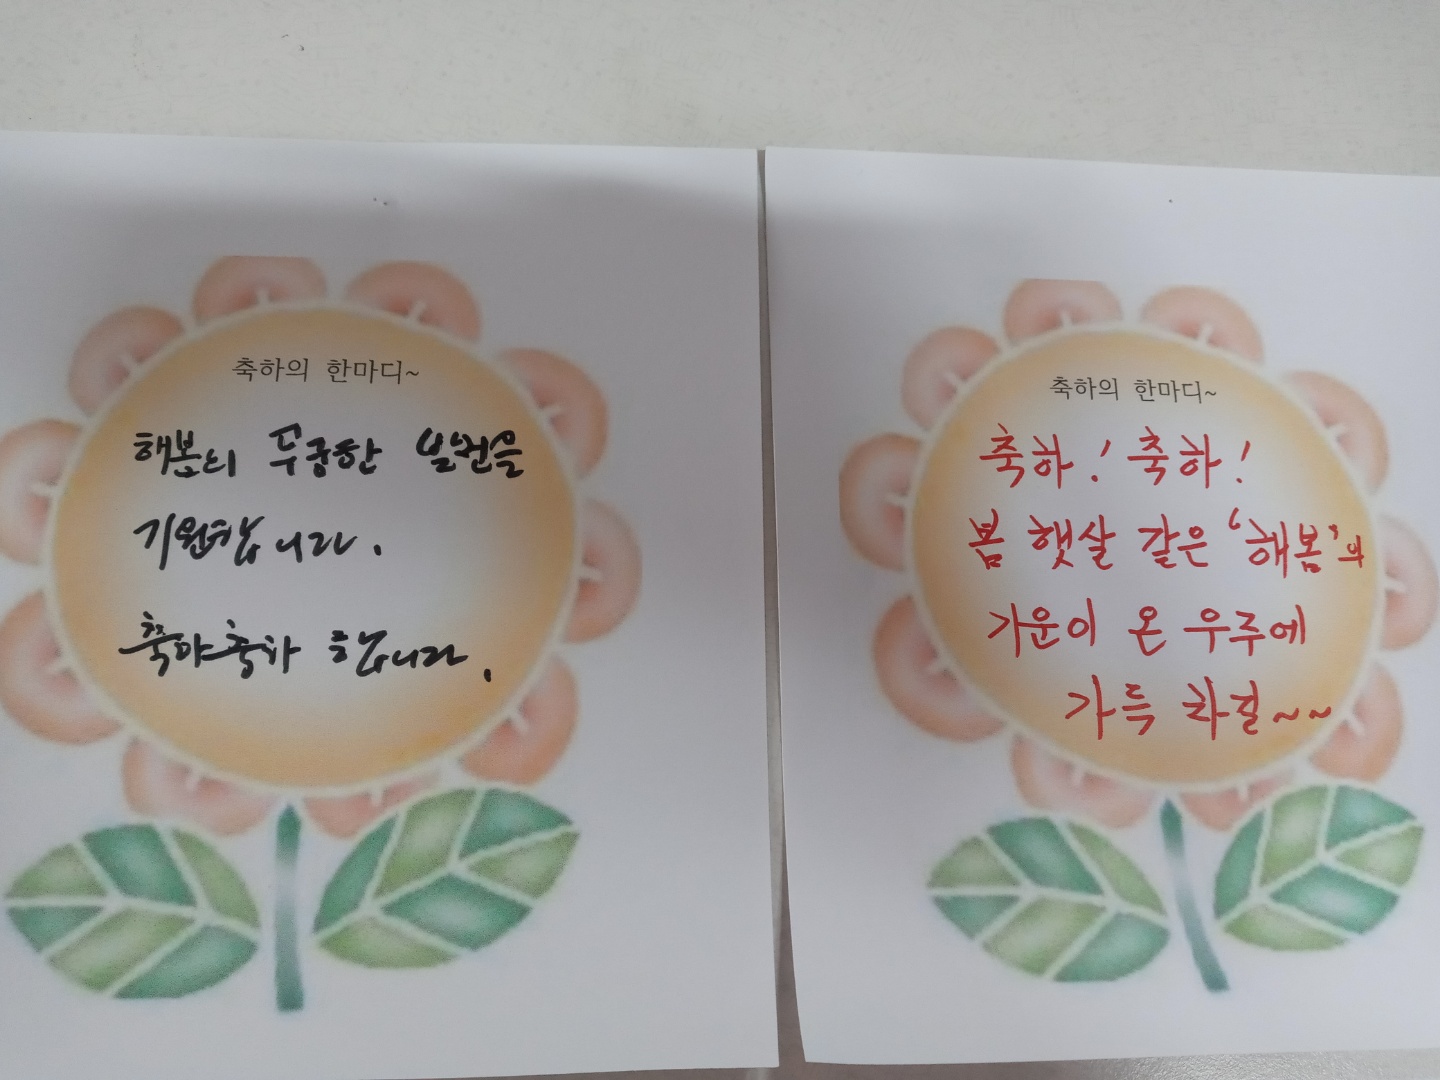 축하의 한마디~
해봄의 무궁한 발전을
기원합니다.
축하축하 합니다.
축하의 한마디~
축하! 축하!
봄 햇살 같은 '해봄'의
기운이 온 우주에
가득 차길~~